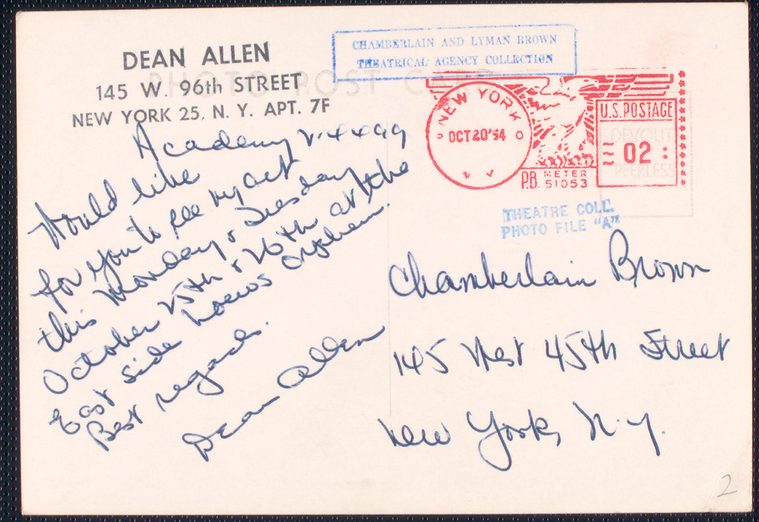 DEAN ALLEN
145 W. 96th STREET
NEW YORK 25, N. Y. APT. 7F
PHOTO POST CARD
CHAMBERLAIN AND LYMAN BROWN
THEATRICAL AGENCY COLLECTION
NEW YORK
OCT 20 '54
U.S. POSTAGE
02
P.B. METER
51053
THEATRE COLL.
PHOTO FILE "A"
Academy 2-4499
Would like
for you to see my act
this Monday & Tuesday
October 25th & 26th at the
East Side Loews Orpheum.
Best regards.
Dean Allen
Chamberlain Brown
145 West 45th Street
New York, N.Y.
2